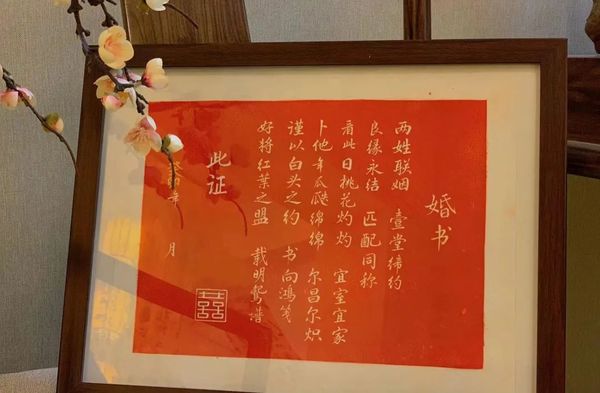 婚书
两姓联姻 壹堂缔约
良缘永结 匹配同称
看此日桃花灼灼 宜室宜家
卜他年瓜瓞绵绵 尔昌尔炽
谨以白头之约 书向鸿笺
好将红葉之盟 载明鸳谱
此证
年 月
囍